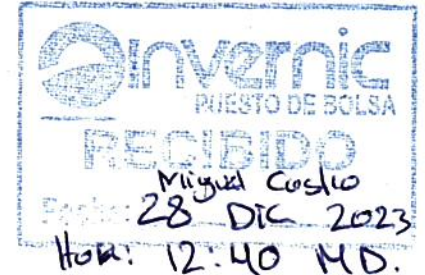 invernic
PUESTO DE BOLSA
RECIBIDO
Miguel Castro
Fecha: 28 DIC 2023
Hora: 12:40 MD.